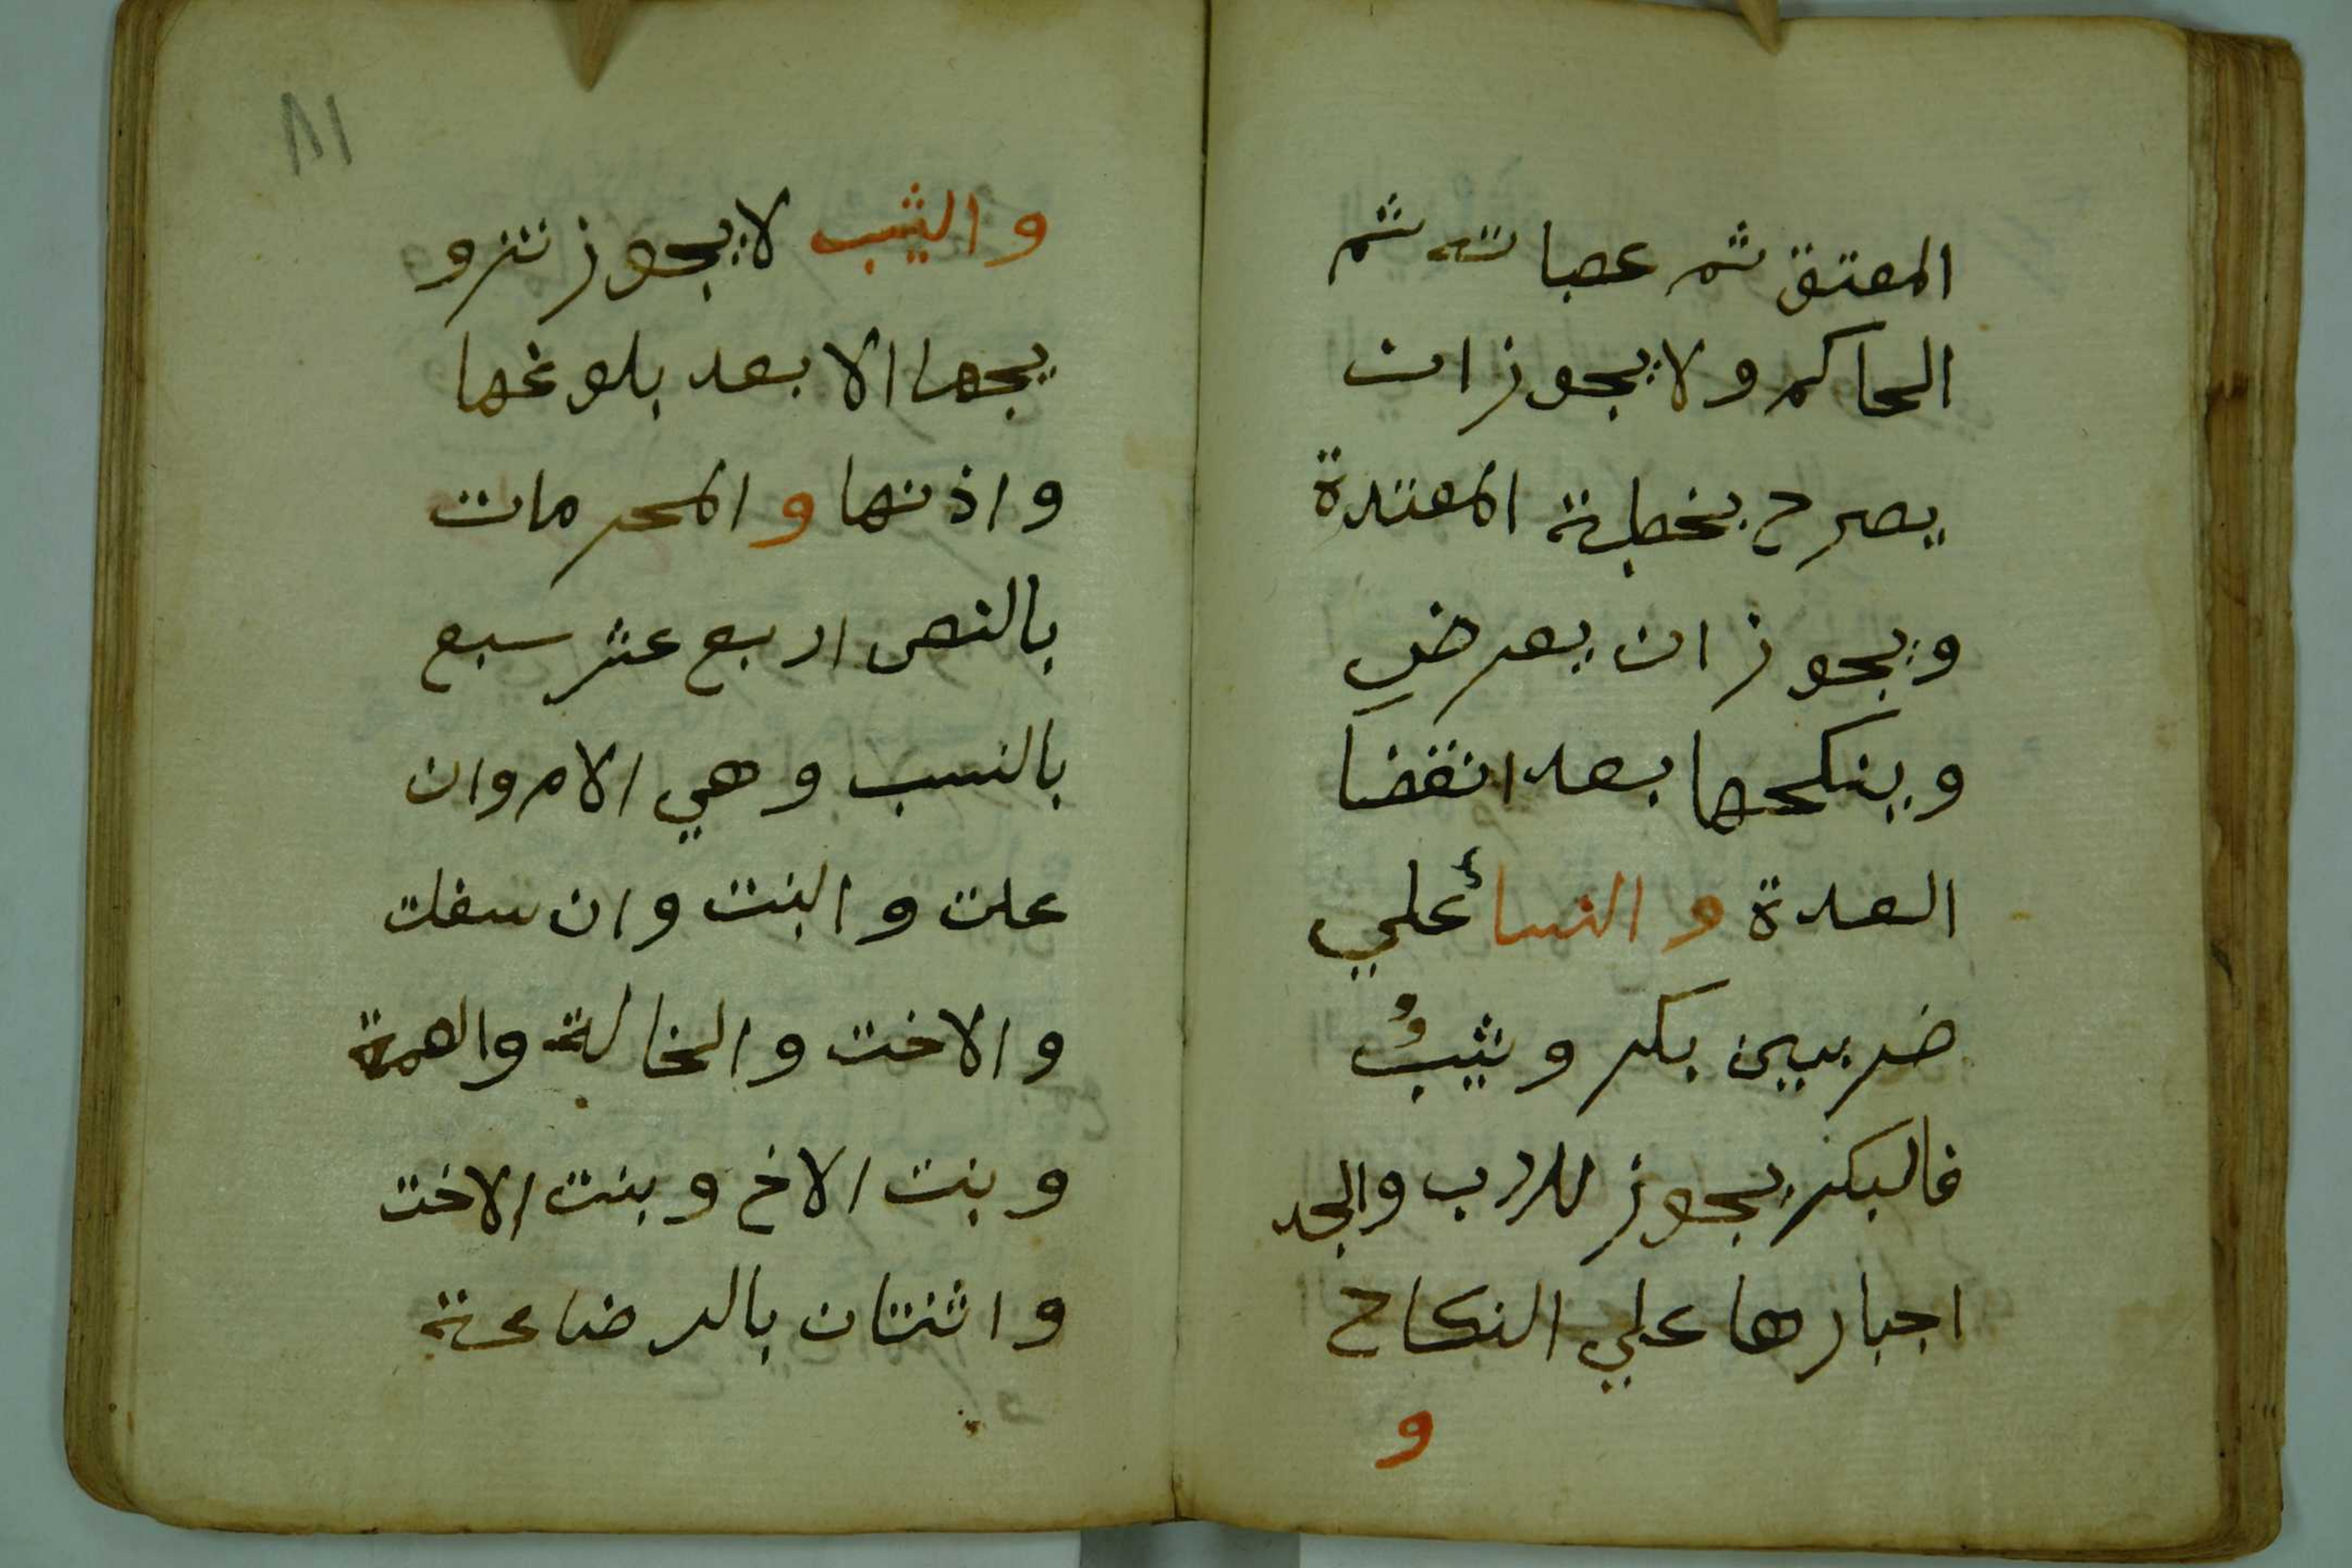 المعتق ثم عصباته ثم
الحاكم ولا يجوز ان
يصرح بخطبة المعتدة
ويجوز ان يعرض
وينكحها بعد انقضا
العدة والنسأ علي
ضربين بكر وثيبٌ
فالبكر يجوز للاب والجد
اجبارها علي النكاح
و
١٨١
والثيب لا يجوز تزو
يجها الا بعد بلوغها
واذنها والمحرمات
بالنص اربع عشر سبع
بالنسب وهي الام وان
علت والبنت وان سفلت
والاخت والخالة والعمة
وبنت الاخ وبنت الاخت
واثنتان بالرضاعة